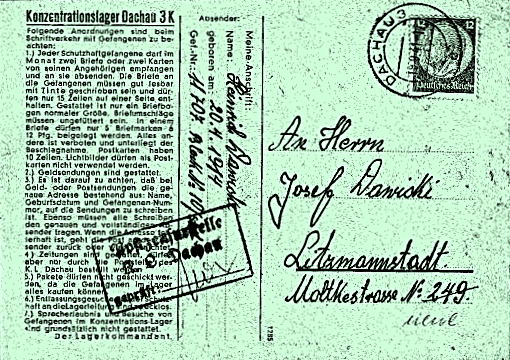 Konzentrationslager Dachau 3 K
Folgende Anordnungen sind beim
Schriftverkehr mit Gefangenen zu be-
achten:
1.) Jeder Schutzhaftgefangene darf im
Monat zwei Briefe oder zwei Karten
von seinen Angehörigen empfangen
und an sie absenden. Die Briefe an
die Gefangenen müssen gut lesbar
mit Tinte geschrieben sein und dür-
fen nur 15 Zeilen auf einer Seite ent-
halten. Gestattet ist nur ein Briefbo-
gen normaler Größe. Briefumschläge
müssen ungefüttert sein. In einem
Briefe dürfen nur 5 Briefmarken à
12 Pfg. beigelegt werden. Alles an-
dere ist verboten und unterliegt der
Beschlagnahme. Postkarten haben
10 Zeilen. Lichtbilder dürfen als Post-
karten nicht verwendet werden.
2.) Geldsendungen sind gestattet.
3.) Es ist darauf zu achten, daß bei
Geld- oder Postsendungen die ge-
naue Adresse bestehend aus: Name,
Geburtsdatum und Gefangenen-Num-
mer, auf die Sendungen zu schreiben
ist. Ebenso müssen alle Schreiben
den genauen und vollständigen Ab-
sender tragen. Wenn die Adresse
fehlerhaft ist, geht die Post an
sender zurück oder
4.) Zeitungen sind gestattet, dürfen
aber nur durch die Poststelle des
K. L. Dachau bestellt werden.
5.) Pakete dürfen nicht geschickt wer-
den, da die Gefangenen im Lager
alles kaufen können.
6.) Entlassungsgesuche aus der Schutz-
haft an die Lagerleitung sind zwecklos.
7.) Sprecherlaubnis und Besuche von
Gefangenen im Konzentrations-Lager
sind grundsätzlich nicht gestattet.
Der Lagerkommandant.
Absender:
Meine Anschrift:
Name:
geboren am: 20.4.1914
Gef.-Nr.:
Postzensurstelle
K. L. Dachau
geprüft:
1285
DACHAU 3
12
Deutsches Reich
An Herrn
Josef Dawicki
Litzmannstadt.
Moltkestrasse Nr. 249.